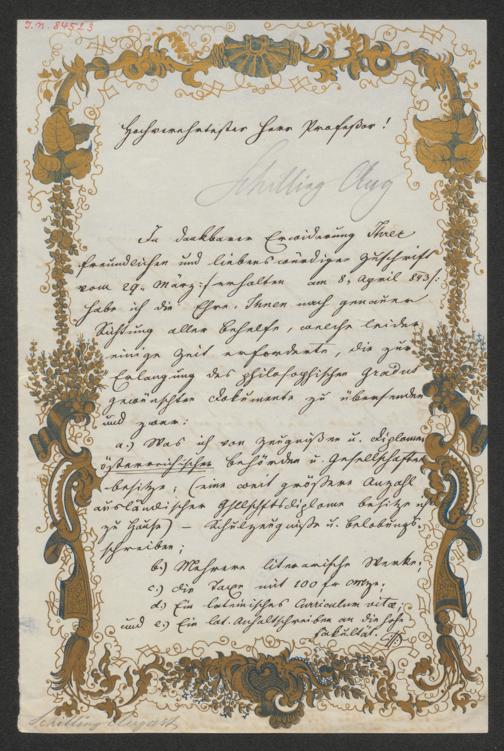 I.N. 84523
Hochverehrtester Herr Professor!
Schilling Aug
In dankbarer Erwiderung Ihrer
freundlichen und liebenswürdigen Zuschrift
vom 29. März :/ erhalten am 8. April 843/:
habe ich die Ehre, Ihnen nach genauer
Sichtung aller Behelfe, welche leider
einige Zeit erforderte, die zur
Erlangung des philosophischen Gradus
gewünschten Dokumente zu übersenden
und zwar:
a.) Was ich von Zeugnißen u. Diplomen
österreichischer Behörden u. Gesellschaften
besitze; (eine weit größere Anzahl
ausländischer Gsllschftsdiplome besitze ich
zu Hause) – Schulzeugniße u. Belobungs-
schreiben;
b.) Mehrere literarische Werke;
c.) die Taxe mit 100 fr
d.) Ein lateinisches Curriculum vitae;
und e.) Ein lat. Anhaltschreiben an die hohe
Fakultät.
Schilling August